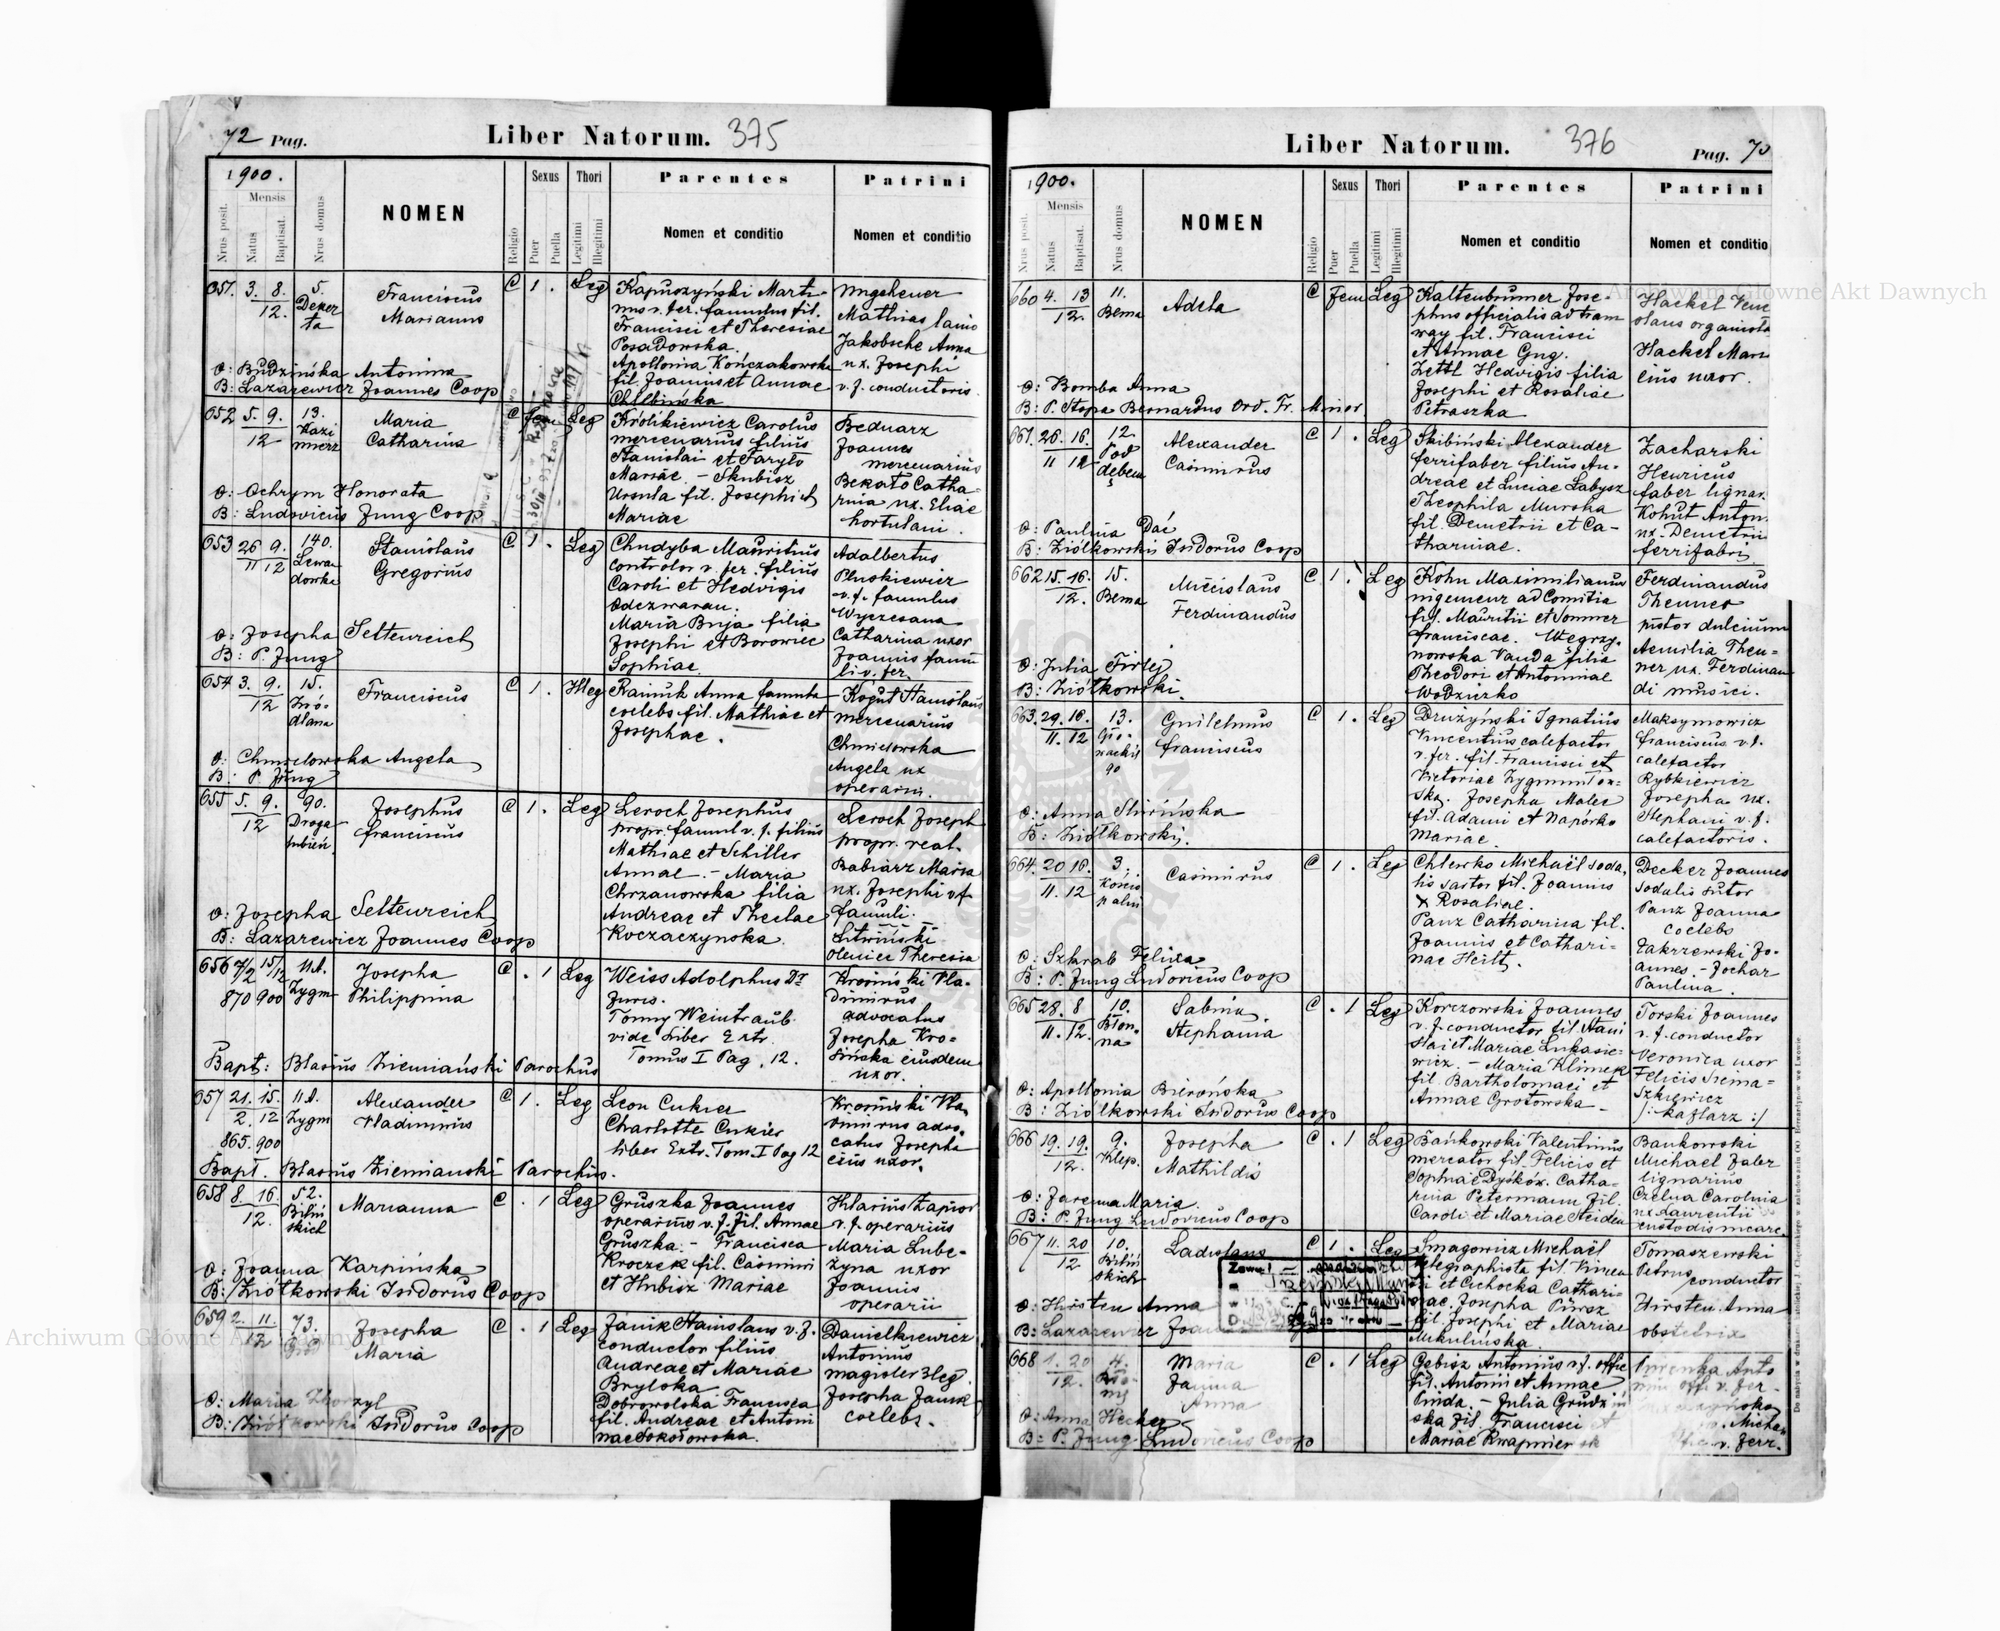 72 Pag.
Liber Natorum. 375
1900.
Mensis
Nrus posit.
Natus
Baptisat.
Nrus domus
NOMEN
Religio
Sexus
Puer
Puella
Thori
Legitimi
Illegitimi
Parentes
Nomen et conditio
Patrini
Nomen et conditio
651. 3. 8. 12. 5.
Franciscus
Marianus
C 1. Leg
Kapuszyński Marti
nus v. fer. famulus fil.
Francisci et Theresiae
Posadowska.
Apollonia Kończakowska
fil. Joannis et Annae
Mathias
Jakobsche Anna
ux. Josephi
v. f. conductoris
O: Budzińska Antonina
B: Lazarewicz Joannes Coop
652 5. 9. 12 13.
Kazi
mierz
Maria
Catharina
C Leg
Królikiewicz Carolus
mercenarius filius
Stanislai et Faryto
Mariae - Skubisz
Ursula fil. Josephi et
Mariae
Bednarz
Joannes
mercenarius
Bekato Catha-
rina ux. Eliae
hortulani.
O: Ochrym Honorata
B: Ludovicus Jung Coop
653 26 9. 11 12 140.
Lewan
dowka
Stanislaus
Gregorius
C 1. Leg
Chudyba Mauritius
controlor v. fer. filius
Caroli et Hedvigis
Odezwarau.
Maria Buja filia
Josephi et Borowiec
Sophiae
Adalbertus
Pluskiewicz
v. f. famulus
Catharina uxor
Joannis famu
li v. fer.
O: Josepha Settenreich
B: P. Jung
654 3. 9. 12 15.
Źró-
dlana
Franciscus
C 1. Illeg
Rainuk Anna famula
coelebs fil. Mathiae et
Josephae.
Kogut Stanislaus
mercenarius
Chmielowska
Angela ux
operarii.
O: Chmielowska Angela
B: P. Jung
655 5. 9. 12 90.
Josephus
Franciscus
C 1. Leg
Leroch Josephus
propr. famul v. f. filius
Mathiae et Schiller
Annae. - Maria
Chrzanowska filia
Andreae et Theclae
Koczaczynska.
Leroch Joseph
propr. real.
Babiarz Maria
ux. Josephi v f
famuli.
Litwiński
Theresia
O: Josepha Settenreich
B: Lazarewicz Joannes Coop
656 15/12 11.A.
870 900 Zygm
Josepha
Philippina
C . 1 Leg
Weiss Adolphus Dr
Juris.
Tonny Weintraub
vide Liber Extr.
Tomus I Pag. 12.
Krosiński Vla-
dimirus
advocatus
Josepha Kro-
sińska eiusdem
uxor.
Bapt: Blasius Ziemiański Parochus
657 21. 15. 2. 12 11.A.
865. 900 Zygm
Alexander
Vladimirus
C 1. Leg
Leon Cukier
Charlotte Cukier
Liber Extr. Tom. I Pag 12
Krosiński Vla
dimirus advo.
catus Josepha
eius uxor.
Bapt. Blasius Ziemianski Parochus.
658 8. 16. 12. 52.
Biliń
skich
Marianna
C . 1 Leg
Gruszka Joannes
operarius v. f. fil. Annae
Gruszka. - Francisca
Kroczek fil. Casimiri
et Hubisz Mariae
Hilarius Zapior
v. f. operarius
Maria Lube-
zyna uxor
Joannis
operarii
O: Joanna Karpińska
B: Ziółkowski Isidorus Coop
659 2. 11. 12 73.
Josepha
Maria
C . 1 Leg
Janik Stanislaus v. f.
conductor filius
Andreae et Mariae
Bryloka
Dobrowolska Francisca
fil. Andreae et Antoni
nae Sokołowska.
Danielkiewicz
Antonius
magister
Josepha Janik
coelebs.
O: Maria
B: Ziółkowski Isidorus Coop
Liber Natorum. 376
Pag. 73
1900.
Mensis
Nrus posit.
Natus
Baptisat.
Nrus domus
NOMEN
Religio
Sexus
Puer
Puella
Thori
Legitimi
Illegitimi
Parentes
Nomen et conditio
Patrini
Nomen et conditio
660 4. 13 12. 11.
Bema
Adela
C Fem Leg
Kaltenbrunner Jose-
phus officialis ad tram
way fil. Francisci
et Annae Gug.
Zettl Hedvigis filia
Josephi et Rosaliae
Petraszka
Hackel Vence
slaus organista
Hackel Maria
eius uxor.
O: Bomba Anna
B: P. Stopa Bernardus Ord. Fr. Minor.
661. 26. 16. 11 12 12.
Pod
dębem
Alexander
Casimirus
C 1. Leg
Skibiński Alexander
ferrifaber filius An-
dreae et Luciae Labysz
Theophila Murska
fil. Demetrii et Ca-
tharinae.
Zacharski
Henricus
faber lignar.
Kohut Anton.
ux. Demetrii
ferrifabri
O: Paulina Dać
B: Ziółkowski Isidorus Coop
662 15. 16. 12. 15.
Bema
Miecislaus
Ferdinandus
C 1. Leg
Kohn Maximilianus
ingenieur ad Comitia
fil. Mauritii et Sommer
Franciscae. Węgrzy-
nowska Vanda filia
Theodori et Antoninae
Wodzicko
Ferdinandus
Theuner
pistor dulcium
Aemilia Theu-
ner ux. Ferdinan
di musici.
O: Julia Firlej
B: Ziółkowski.
663. 29. 16. 11. 12 13.
Guilelmus
Franciscus
C 1. Leg
Drużyński Ignatius
Vincentius calefactor
v. fer. fil. Francisci et
Victoriae Zygmuntow-
ska. Josepha Malec
fil. Adami et Napórko
Mariae.
Maksymowicz
Franciscus v. f.
calefactor
Rybkiewicz
Josepha ux.
Stephani v. f.
calefactoris.
O: Anna Śliwińska
B: Ziółkowski.
664. 20 16. 11. 12 3.
Casimirus
C 1. Leg
Chlewko Michaël soda-
lis sartor fil. Joannis
& Rosaliae.
Panz Catharina fil.
Joannis et Cathari-
nae Heilt.
Decker Joannes
sodalis sutor
Panz Joanna
coelebs
Zakrzewski Jo-
annes. - Jochar
Paulina.
O: Szkrab Felixa
B: P. Jung Ludovicus Coop
665 28. 8 11. 12. 10.
Błon-
na
Sabina
Stephania
C . 1 Leg
Korczowski Joannes
v. f. conductor fil. Stani
slai et Mariae Lukasie-
wicz. - Maria Klimek
fil. Bartholomaei et
Annae Grotowska -
Torski Joannes
v. f. conductor
Veronica uxor
Felicis Srema-
szkiewicz
/: kaflarz :/
O: Apollonia Bierońska
B: Ziółkowski Isidorus Coop
666 19. 19. 12. 9.
Klep.
Josepha
Mathildis
C . 1 Leg
Bańkowski Valentinus
mercator fil. Felicis et
Sophiae Dysków. Catha-
rina Petermann fil.
Caroli et Mariae Steiden
Bankowski
Michael faber
lignarius
Czelua Carolina
ux. Laurentii
O: Jarema Maria
B: P. Jung Ludovicus Coop
667 11. 20 12 10.
Biliń
skich
Ladislaus
C 1. Leg
Smagowicz Michaël
telegraphista fil. Vincen
tii et Cichocka Cathari-
nae. Josepha
fil. Josephi et Mariae
Mikulińska.
Tomaszewski
Petrus conductor
Hirsten Anna
obstetrix
O: Hirsten Anna
B: Lazarewicz
668 1. 20 12. 4.
Maria
Janina
Anna
C . 1 Leg
Gebisz Antonius v. f. offic
fil. Antonii et Annae
Pinda. - Julia Grudziń
ska fil. Francisci et
Mariae
O: Anna Hecker
B: P. Jung Ludovicus Coop
Archiwum Główne Akt Dawnych
Archiwum Główne Akt Dawnych